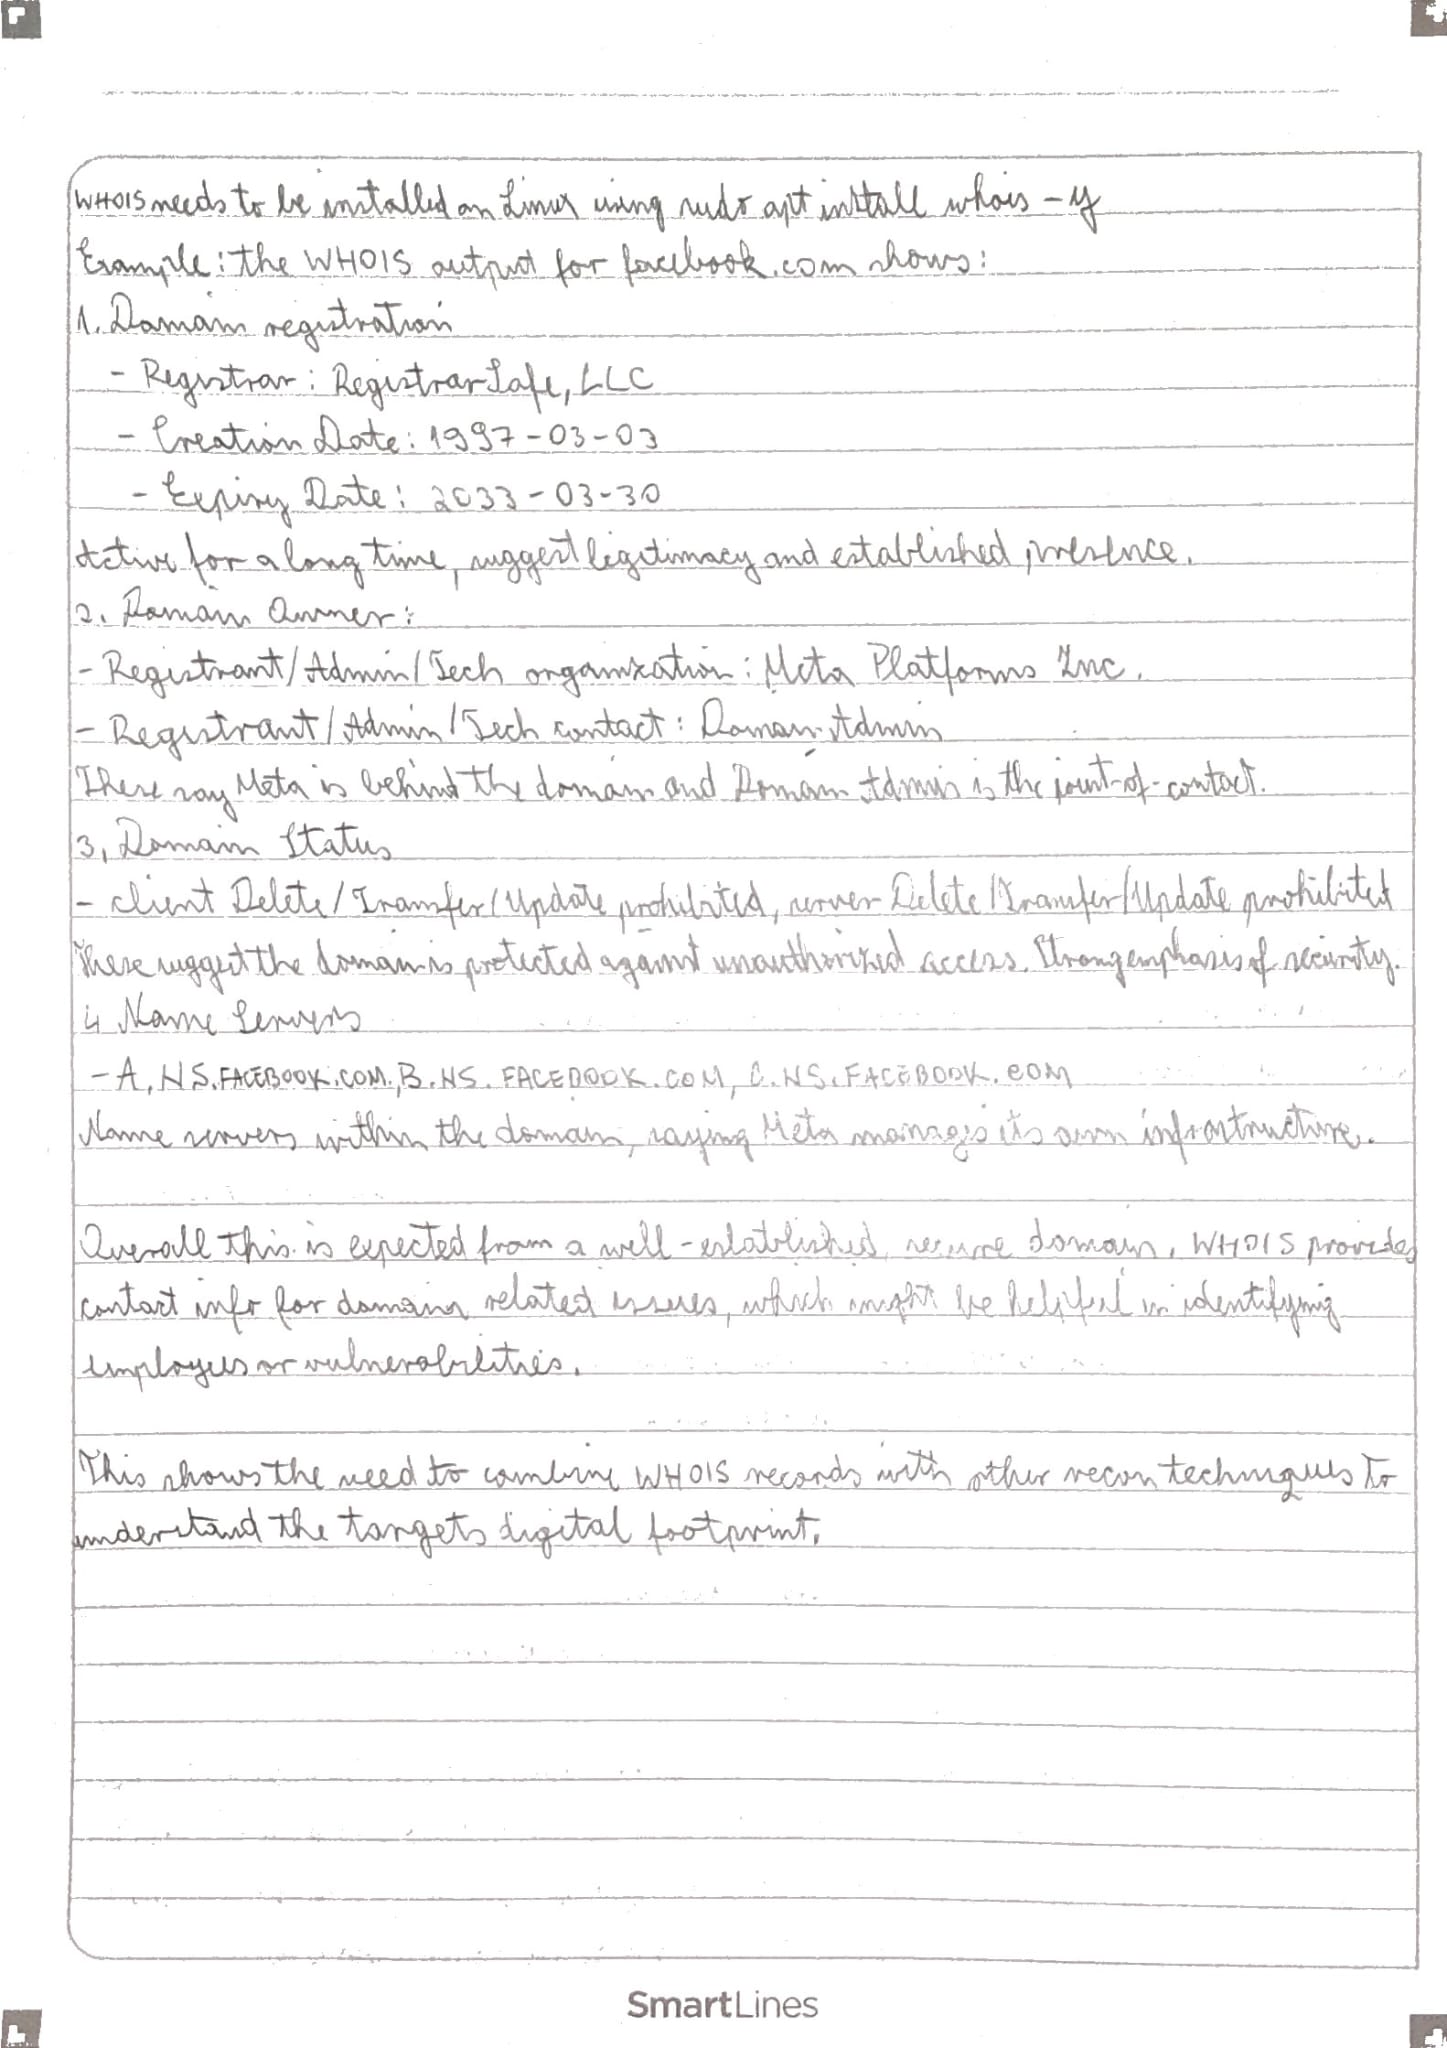 WHOIS needs to be installed on Linux using sudo apt install whois -y
Example: the WHOIS output for facebook.com shows:
1. Domain registration
- Registrar: RegistrarSafe, LLC
- Creation Date: 1997-03-03
- Expiry Date: 2033-03-30
Active for a long time, suggest legitimacy and established presence.
2. Domain Owner:
- Registrant/Admin/Tech organization: Meta Platforms Inc.
- Registrant/Admin/Tech contact: Domain Admin
These say Meta is behind the domain and Domain Admin is the point-of-contact.
3, Domain Status
- client Delete/Transfer/Update prohibited, server Delete/Transfer/Update prohibited
These suggest the domain is protected against unauthorized access. Strong emphasis of security.
4 Name Servers
- A.NS.FACEBOOK.COM, B.NS.FACEBOOK.COM, C.NS.FACEBOOK.COM
Name servers within the domain, saying Meta manages its own infrastructure.
Overall this is expected from a well-established, secure domain. WHOIS provides
contact info for domain related issues, which might be helpful in identifying
employees or vulnerabilities.
This shows the need to combine WHOIS records with other recon techniques to
understand the targets digital footprint.
SmartLines